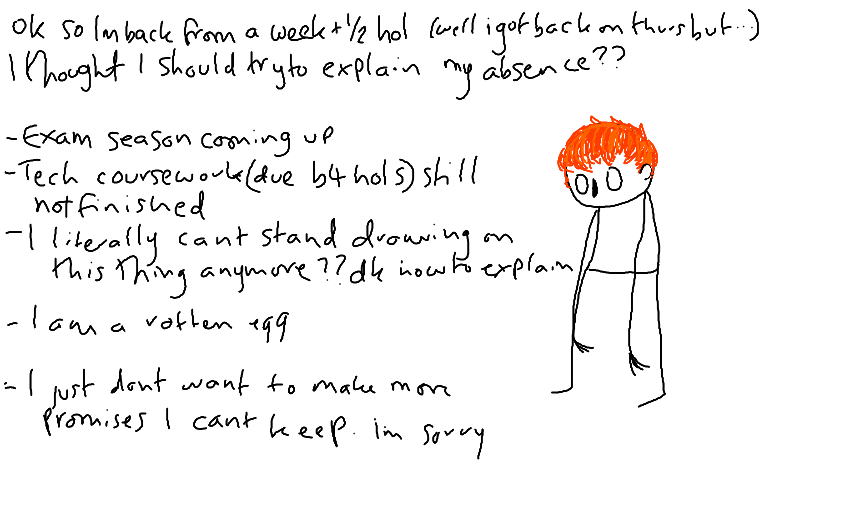 ok so Im back from a week + 1/2 hol (well i got back on thurs but...)
I thought I should try to explain my absence??
- Exam season coming up
- Tech coursework (due b4 hols) still
not finished
- I literally cant stand drawing on
this thing anymore?? dk how to explain
- I am a rotten egg
- I just dont want to make more
promises I cant keep. im sorry